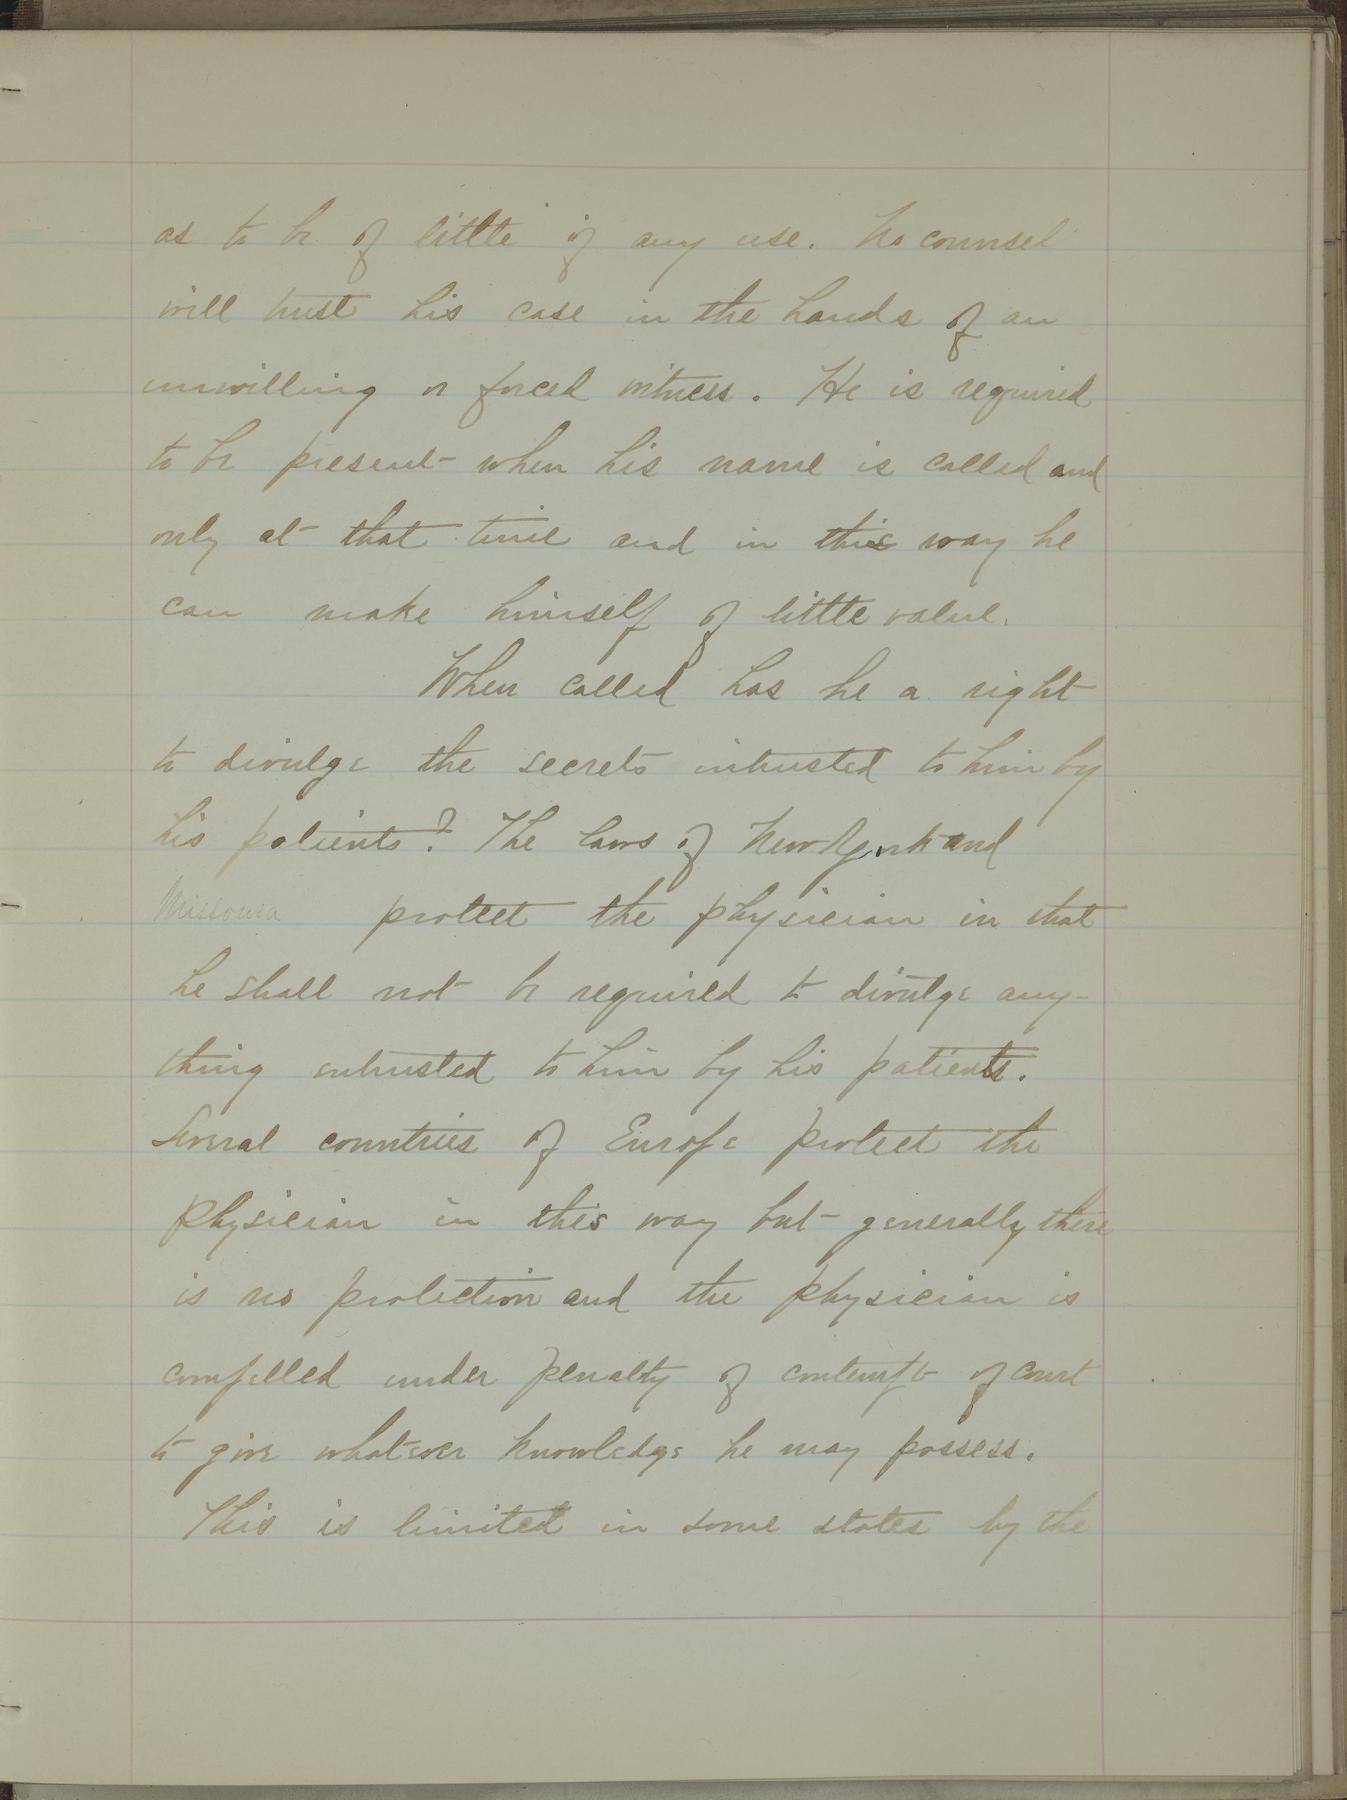 as to be of little if any use. No counsel
will trust his case in the hands of an
unwilling or forced witness. He is required
to be present when his name is called and
only at that time and in this way he
can make himself of little value.
When called has he a right
to divulge the secrets intrusted to him by
his patients? The laws of New York and
Missouri protect the physician in that
he shall not be required to divulge any-
thing entrusted to him by his patients.
Several countries of Europe protect the
physician in this way but generally there
is no protection and the physician is
compelled under penalty of contempt of court
to give whatever knowledge he may possess.
This is limited in some states by the